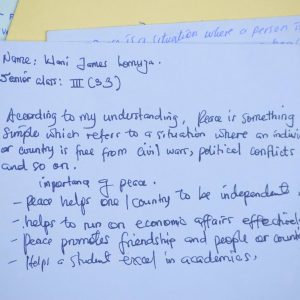 is a situation where a person i
Name: Wani James Lomuja.
Senior class: III (S3)
According to my understanding, Peace is something
Simple which refers to a situation where an individ
or country is free from civil wars, political conflicts
and so on.
importance of peace.
- peace helps one / country to be independent
- helps to run on economic affairs effectively
- Peace promotes friendship and people or countri
- Helps a student excel in academics,